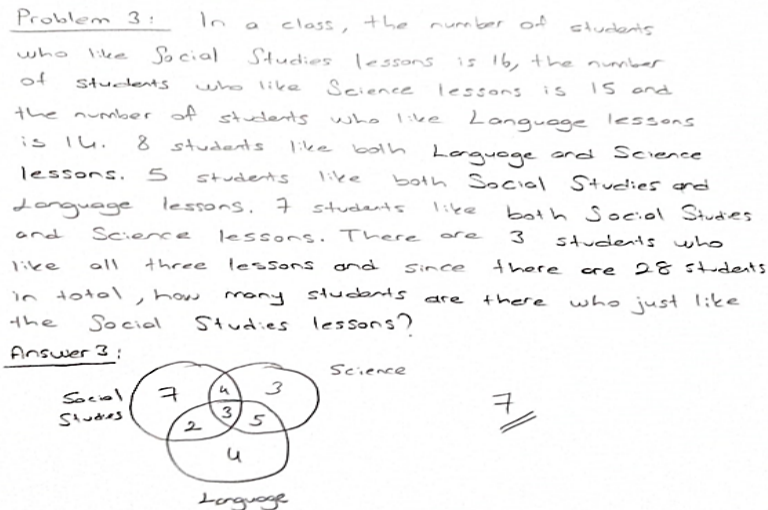 Problem 3: In a class, the number of students
who like Social Studies lessons is 16, the number
of students who like Science lessons is 15 and
the number of students who like Language lessons
is 14. 8 students like both Language and Science
lessons. 5 students like both Social Studies and
Language lessons. 7 students like both Social Studies
and Science lessons. There are 3 students who
like all three lessons and since there are 28 students
in total, how many students are there who just like
the Social Studies lessons?
Answer 3:
Science
Social
Studies
7 4 3
3
2 5
4
Language
7